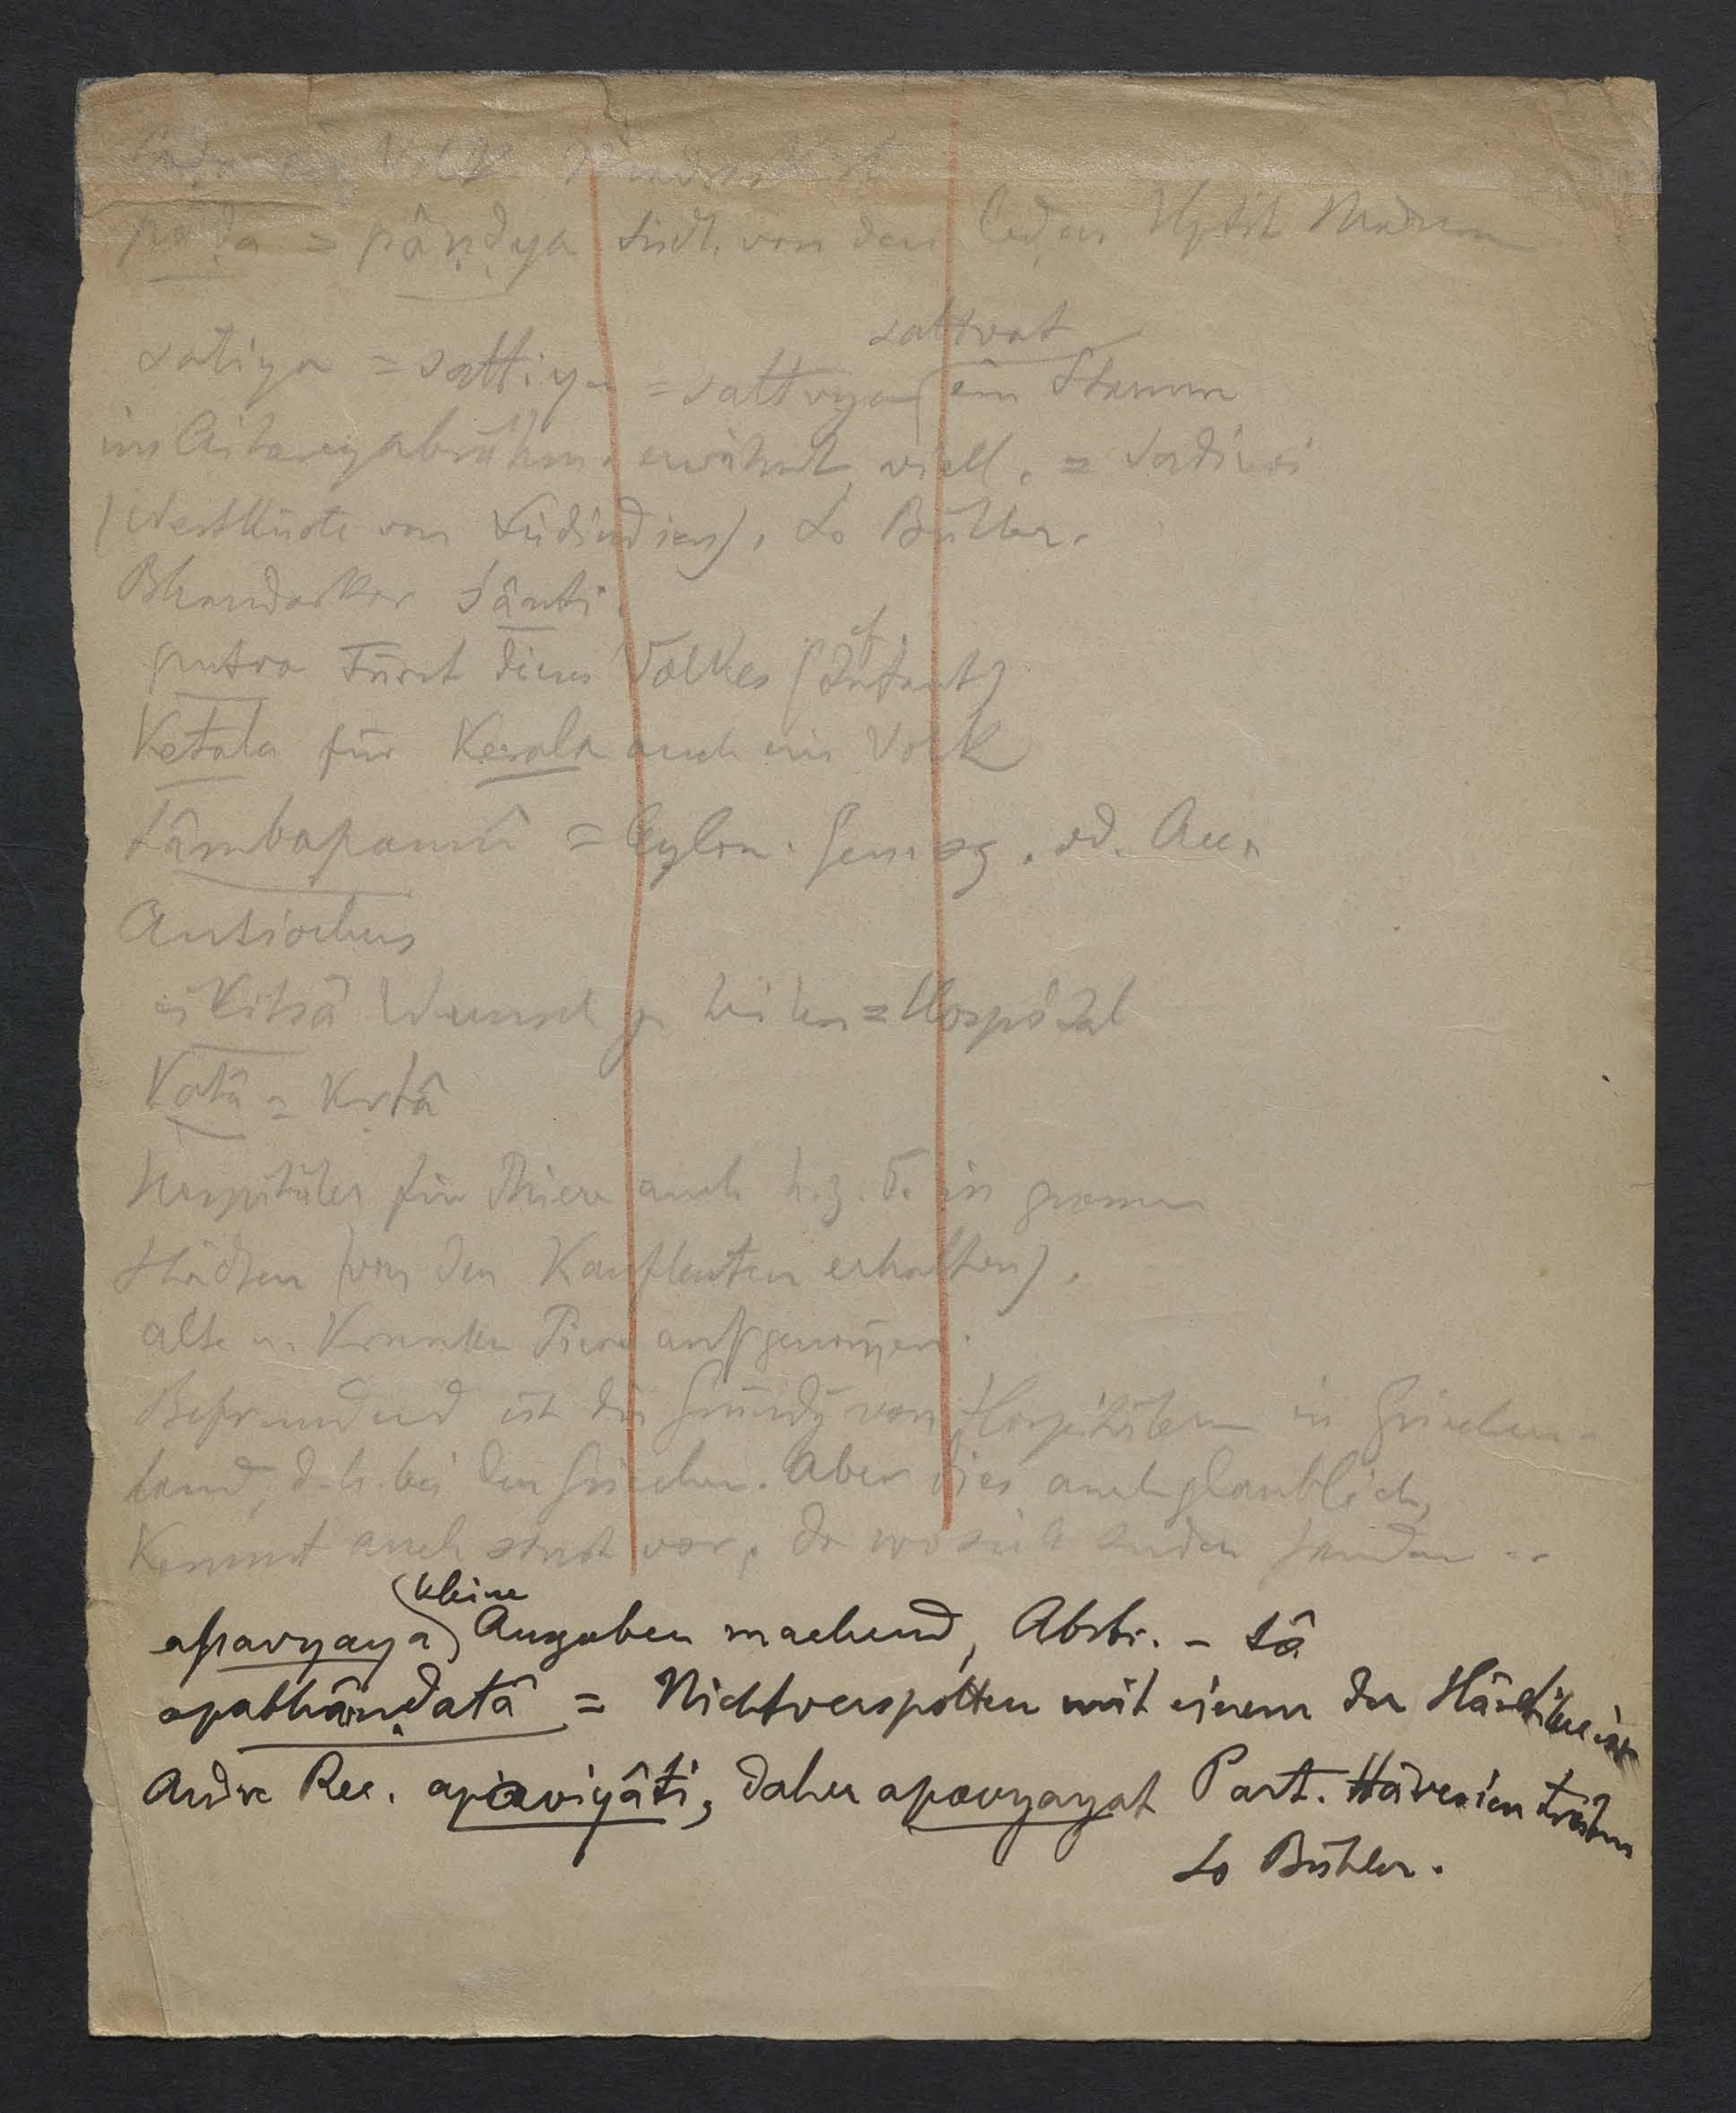 Coḍa ein Volk
paḍa = pâṇḍya südl. von den Coḍas Hptst Madura
satiya = sattiya = sattvya (ein Stamm
sattvat
im Aitareyabrâhm. erwähnt, viell. =
(Westküste von Südindien). So Bühler.
Bhandarkar Sânti
putra Fürst dieses Volkes (cf Infant)
Ketala für Kerala auch ein Volk
Tâmbapamnî = Ceylon. Gen sg. od. Acc.
Antiochus
cikitsâ Wunsch zu heilen = Hospital
Katâ = Kṛtâ
Hospitäler für Thiere auch h.z.T. in grossen
Städten (von den Kaufleuten erhalten).
alte u. kranke Tiere aufgenom̅en.
Befremdend ist die Gründg von Hospitälern in Griechen-
land, d.h. bei den Griechen. Aber dies auch glaublich,
Kommt auch sonst vor, da wo sich Inder fanden
kleine
apavyaya) Ausgaben machend, Abstr. - tâ
apabhâṇḍatâ = Nichtverspotten mit einem der Häretiker ist
Andre Rec. apaviyâti, daher apavyayat Part. Häresien
So Bühler.